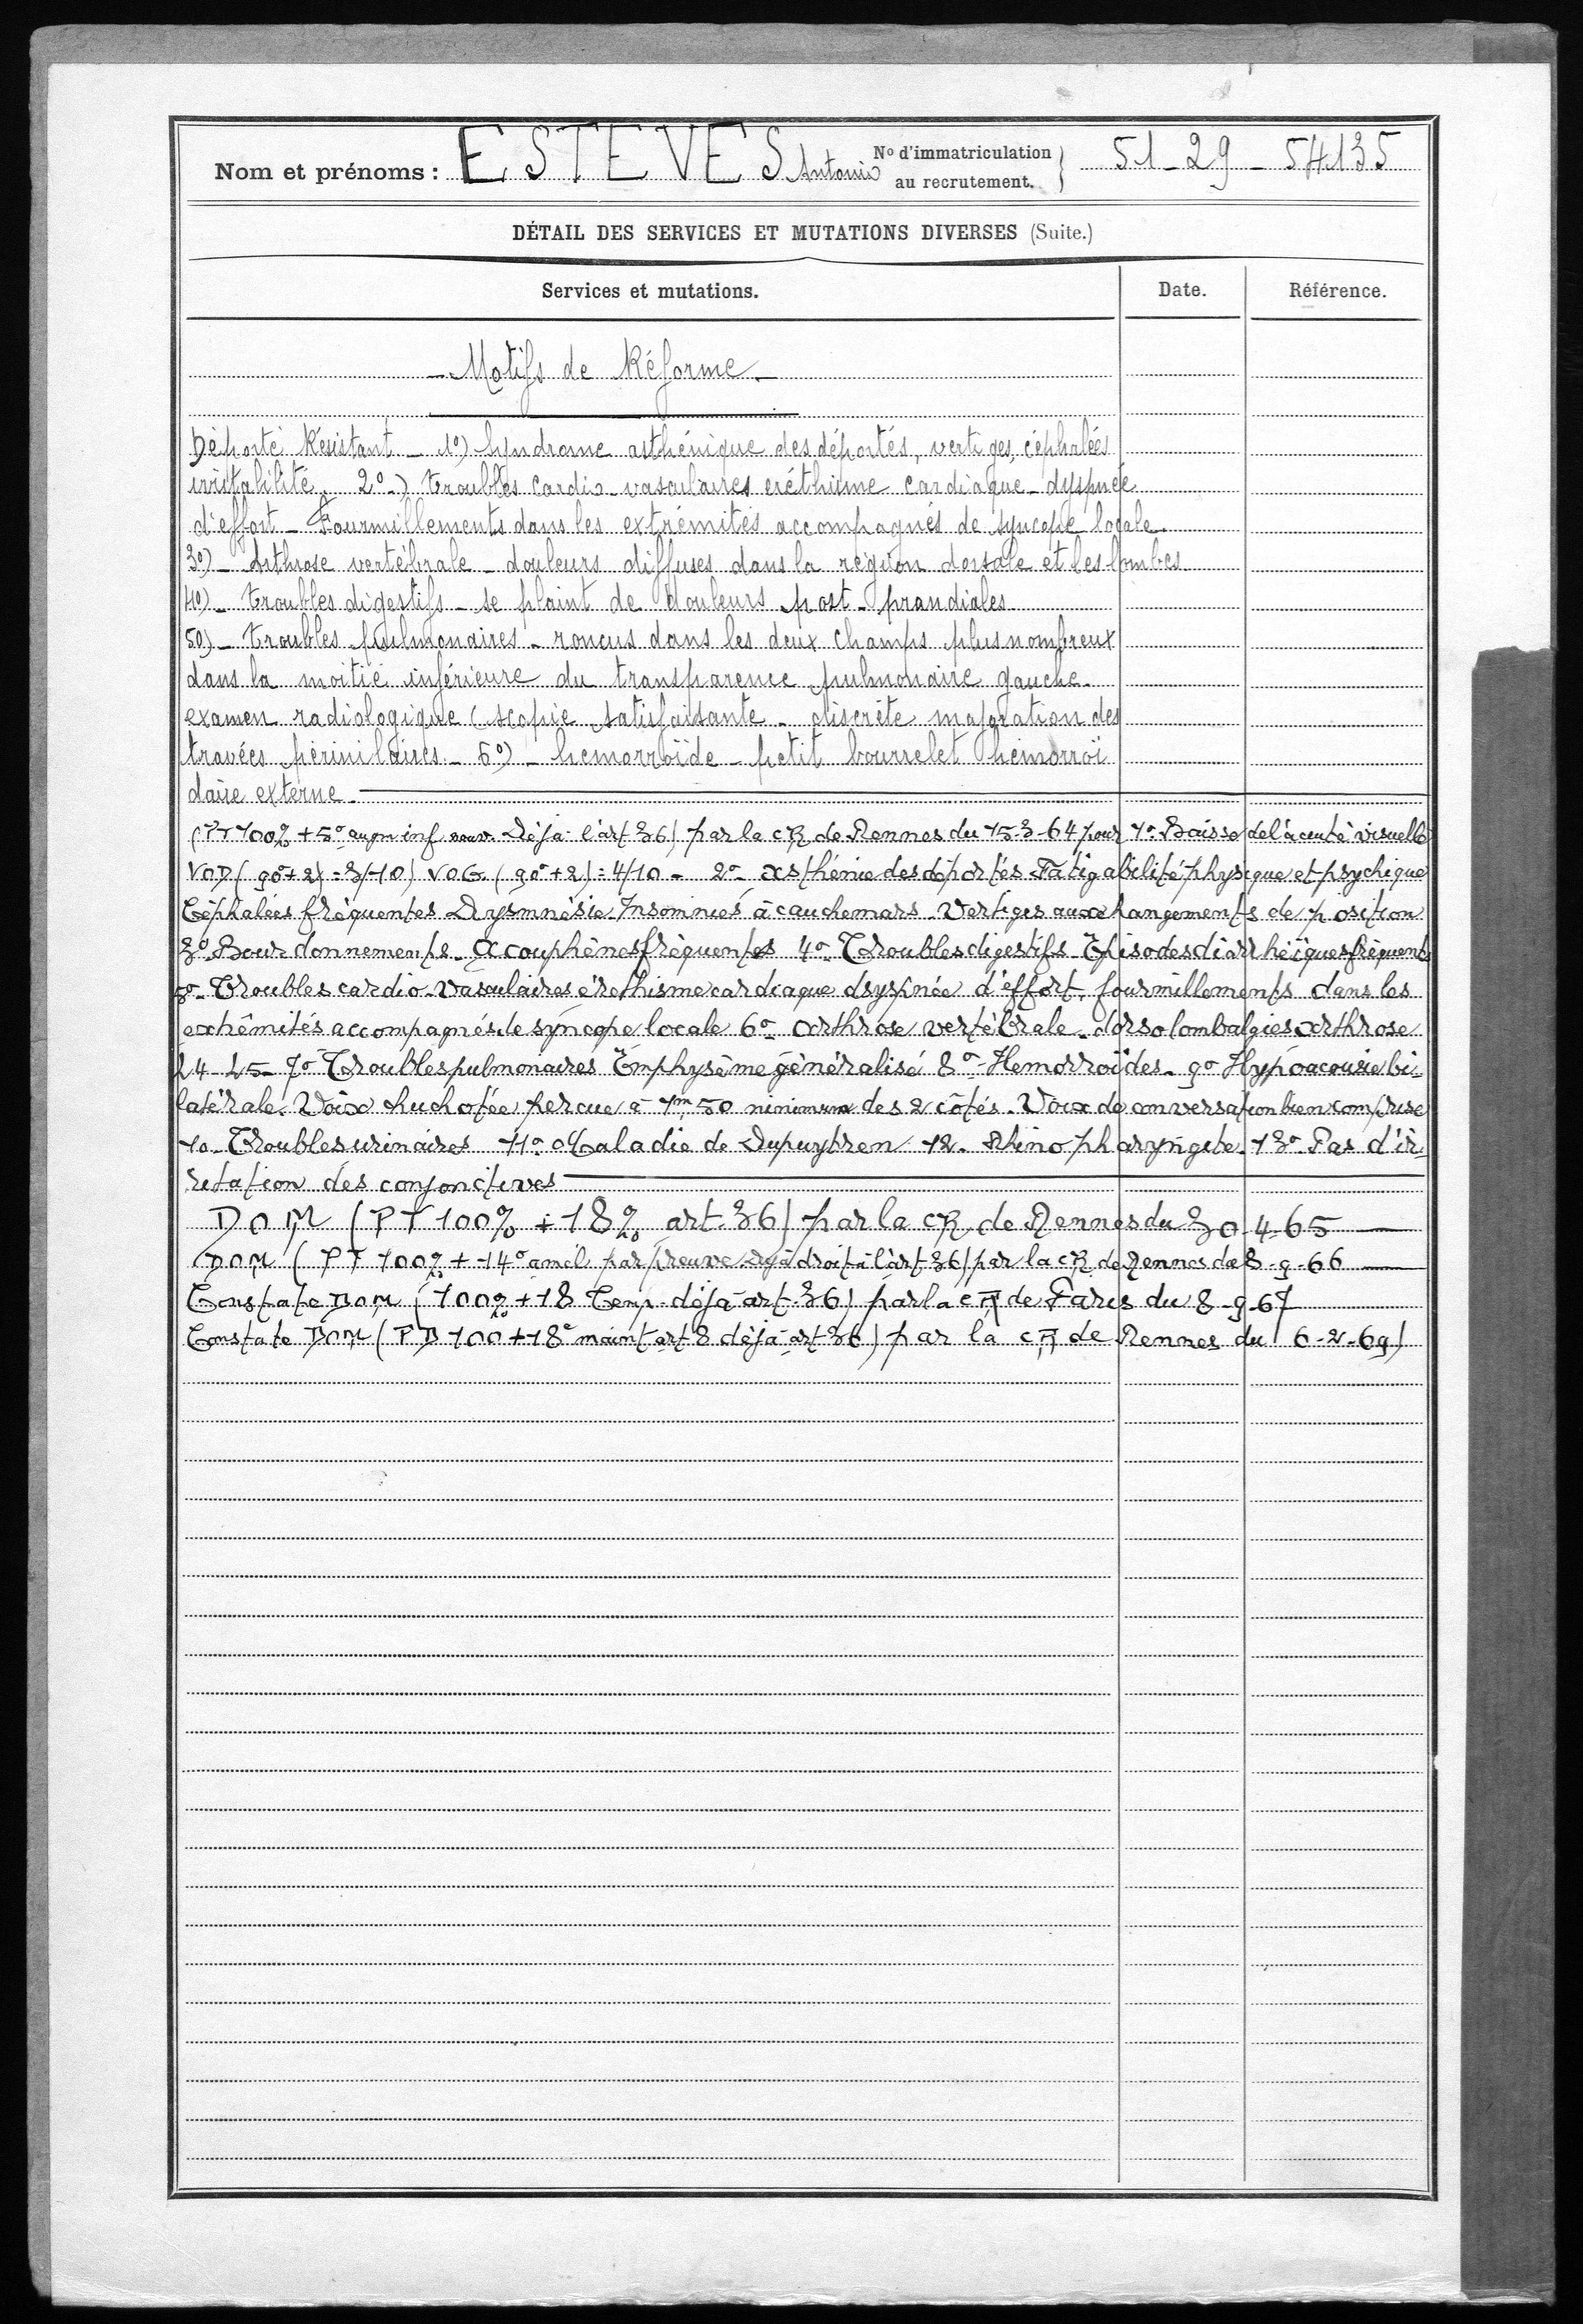 Nom et prénoms : ESTEVES Antonio N° d'immatriculation au recrutement. } 51-29-54135
DÉTAIL DES SERVICES ET MUTATIONS DIVERSES (Suite.)
Services et mutations. Date. Référence.
- Motifs de Réforme -
Déporté Résistant - 1°) Syndrome asthénique des déportés, vertiges, céphalées
irritabilité. 2°-) troubles cardio-vasculaires eréthisme cardiaque - dyspnée
d'effort - Fourmillements dans les extrémités accompagnés de syncope locale.
3°) - Arthrose vertébrale - douleurs diffuses dans la région dorsale et les lombes
4°) - troubles digestifs - se plaint de douleurs post-prandiales
5°) - troubles pulmonaires - roncus dans les deux champs plus nombreux
dans la moitié inférieure du transparence pulmonaire gauche.
examen radiologique (scopie satisfaisante - discrète majoration des
travées périhilaires. - 6°) - hémorroïde - petit bourrelet hémorroï
daire externe.
(PT 100% + 5° augm inf nouv. Déjà l'art 36) par la CR de Rennes du 15-3-64 pour 1° Baisse de l'acuité visuelle
VOD (90°+2) = 3/10) VOG (90°+2) = 4/10 - 2° - asthénie des déportés Fatigabilité physique et psychique
Céphalées fréquentes Dysmnésie Insomnies à cauchemars - Vertiges aux changements de position
3° Bourdonnements - acouphènes fréquentes 4° - Troubles digestifs - Episodes diarrhéiques fréquents
5° - Troubles cardio-Vasculaires éréthisme cardiaque dsyspnée d'effort, fourmillements dans les
extrêmités accompagnés de syncope locale 6° - arthrose vertébrale - dorso lombalgies arthrose
L4-L5 - 7° Troubles pulmonaires Emphysème généralisé 8° - Hemorroïdes - 9° Hypoacousie bi-
latérale. Voix chuchotée percue à 1m50 minimum des 2 côtés - Voix de conversation bien comprise
10 - Troubles urinaires 11° Maladie de Dupuytren 12 - Rhino pharyngite - 13° Pas d'ir-
ritation des conjonctives
DOM (PT 100% + 18% art. 36) par la CR de Rennes du 30-4-65
DOM (PT 100% + 14° amél par preuve Déjà droit à l'art 36) par la CR de Rennes du 8-9-66
Constate DOM (100% + 18 Temp déjà art. 36) par la CR de Paris du 8-9-67
Constate DOM (PD 100 + 18° maint art 8 déjà art 36) par la CR de Rennes du 6-2-69)